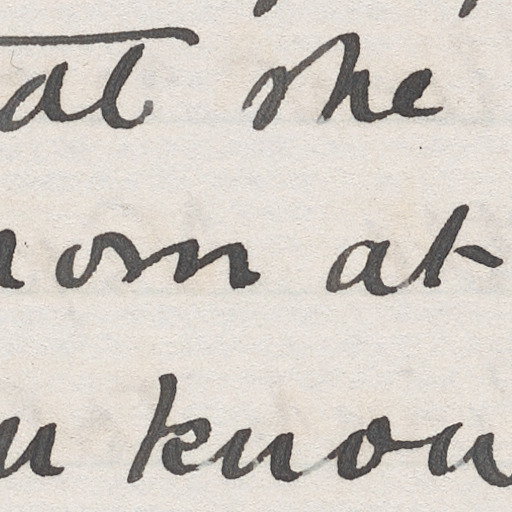 at she
om at
u know